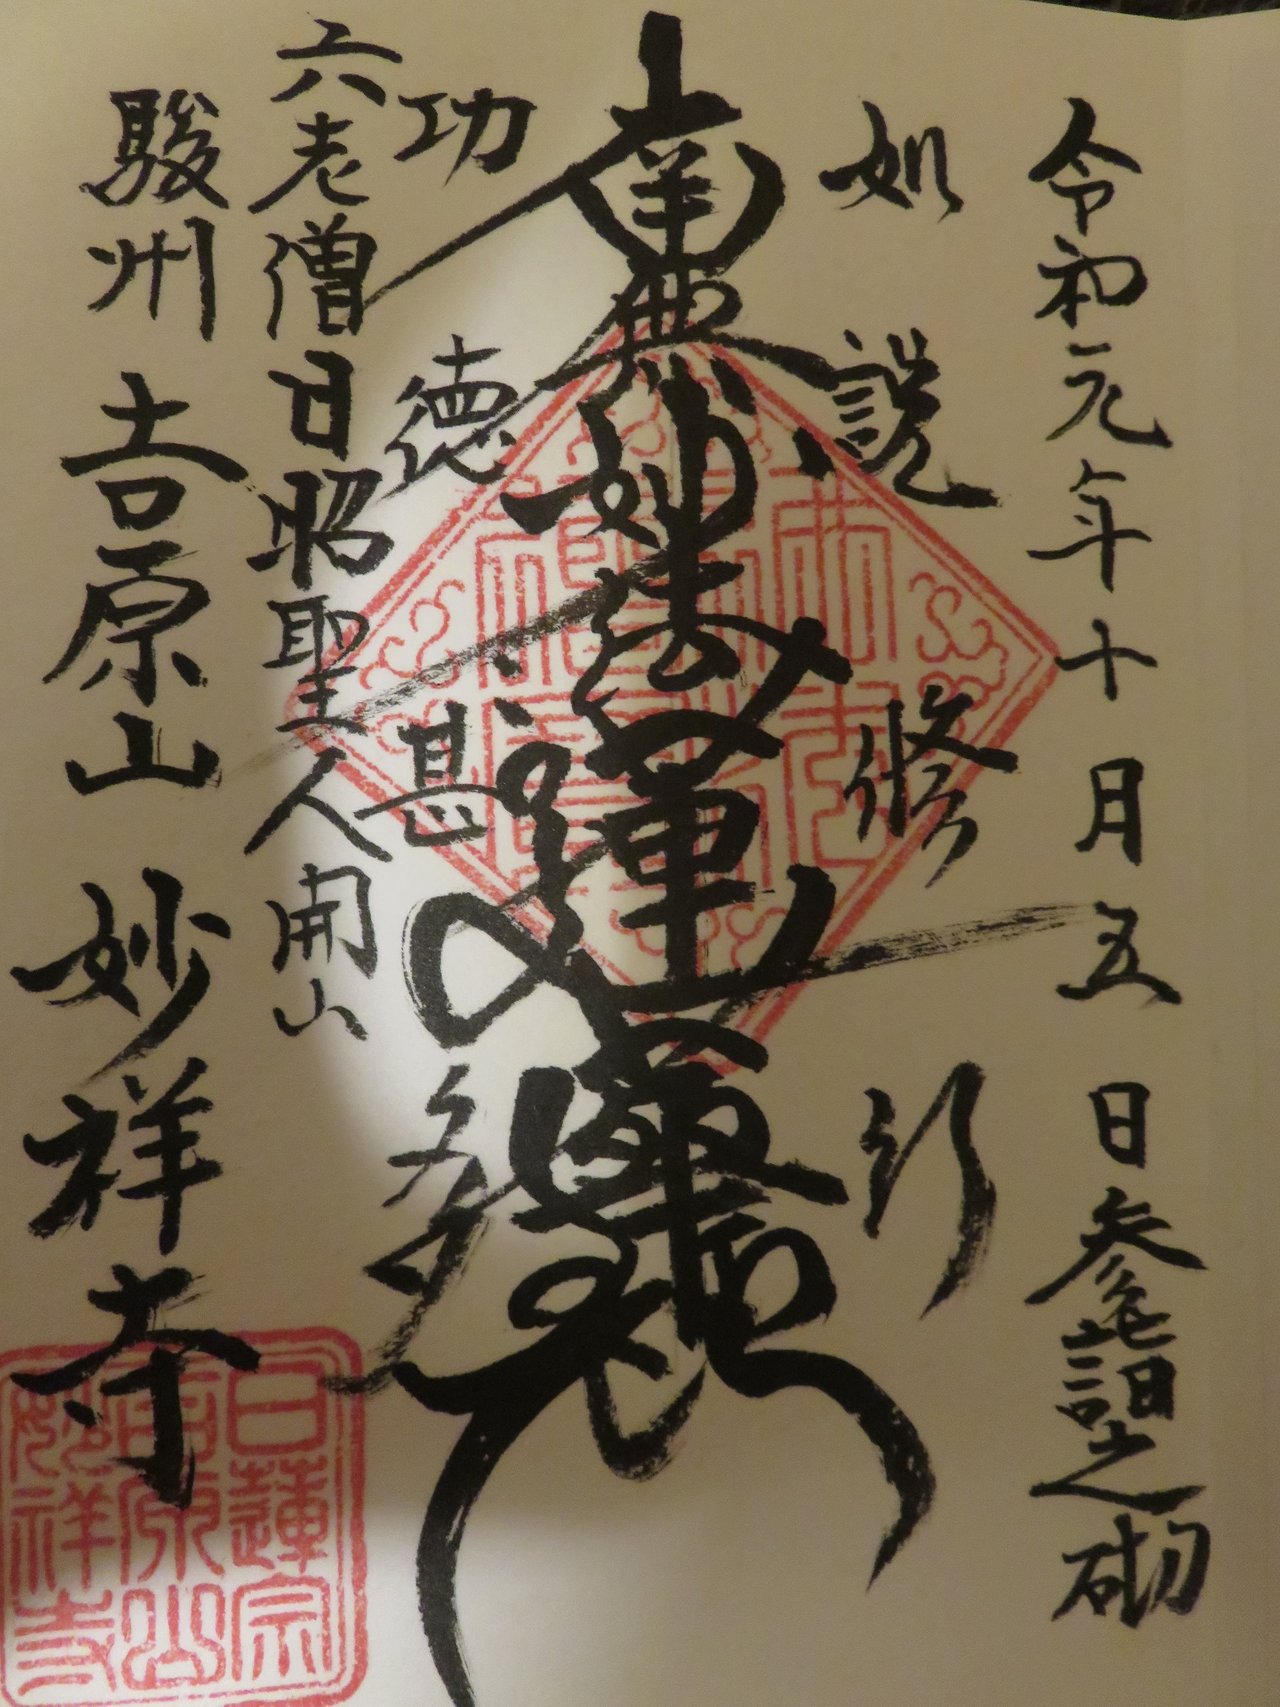 令和元年十月五日参詣之砌
如説修行
南無妙法蓮華経
功徳甚多
六老僧日昭聖人開山
駿州 吉原山 妙祥寺
日蓮宗
吉原山
妙祥寺